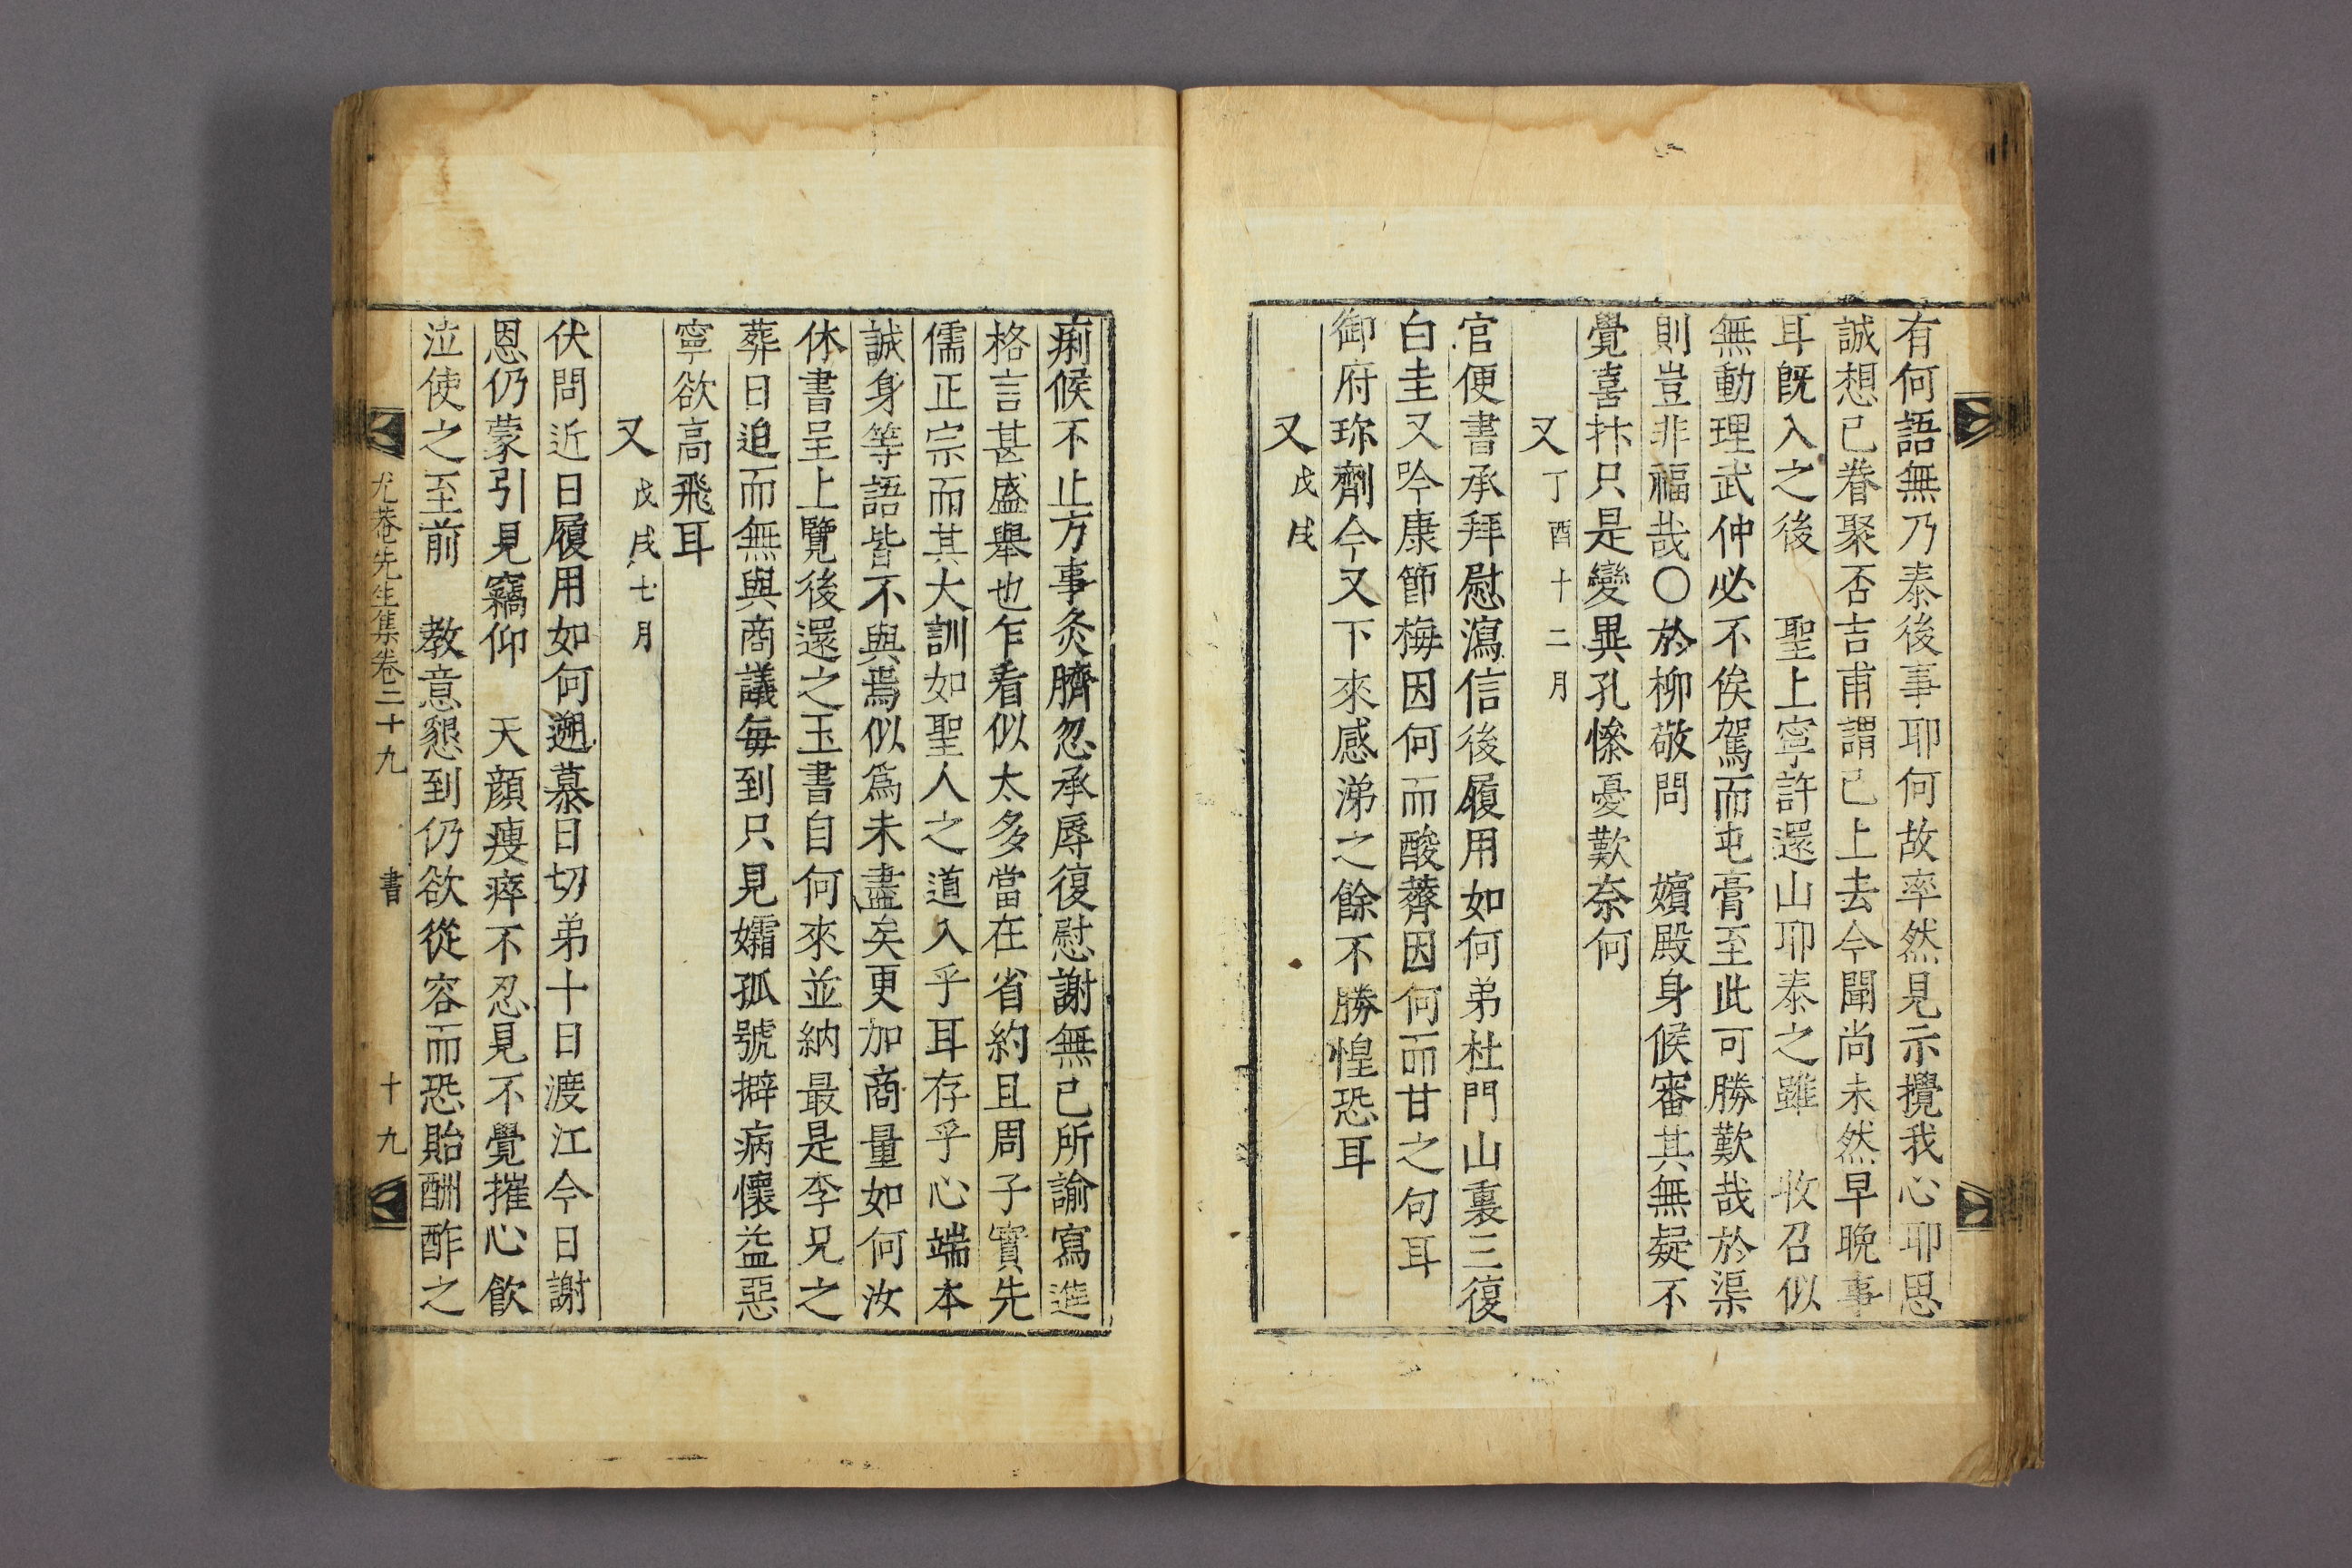 有何語無乃泰後事耶何故率然見示攪我心耶思
誠想已眷聚否吉甫謂已上去今聞尚未然早晚事
耳旣入之後 聖上寧許還山耶泰之雖 收召似
無動理武仲必不俟駕而屯膏至此可勝歎哉於渠
則豈非福哉〇於柳敬問 嬪殿身候審其無疑不
覺喜抃只是變異孔慘憂歎奈何
又 丁酉十二月
官便書承拜慰瀉信後履用如何弟杜門山裏三復
白圭又吟康節梅因何而酸薺因何而甘之句耳
御府珎劑今又下來感涕之餘不勝惶恐耳
又 戊戌
痢候不止方事灸臍忽承辱復慰謝無已所諭寫進
格言甚盛擧也乍看似太多當在省約且周子實先
儒正宗而其大訓如聖人之道入乎耳存乎心端本
誠身等語皆不與焉似爲未盡矣更加商量如何汝
休書呈上覽後還之玉書自何來並納最是李兄之
葬日迫而無與商議每到只見孀孤號擗病懷益惡
寧欲高飛耳
又 戊戌七月
伏問近日履用如何遡慕日切弟十日渡江今日謝
恩仍蒙引見竊仰 天顏瘦瘁不忍見不覺摧心飮
泣使之至前 教意懇到仍欲從容而恐貽酬酢之
尤菴先生集卷二十九 書 十九